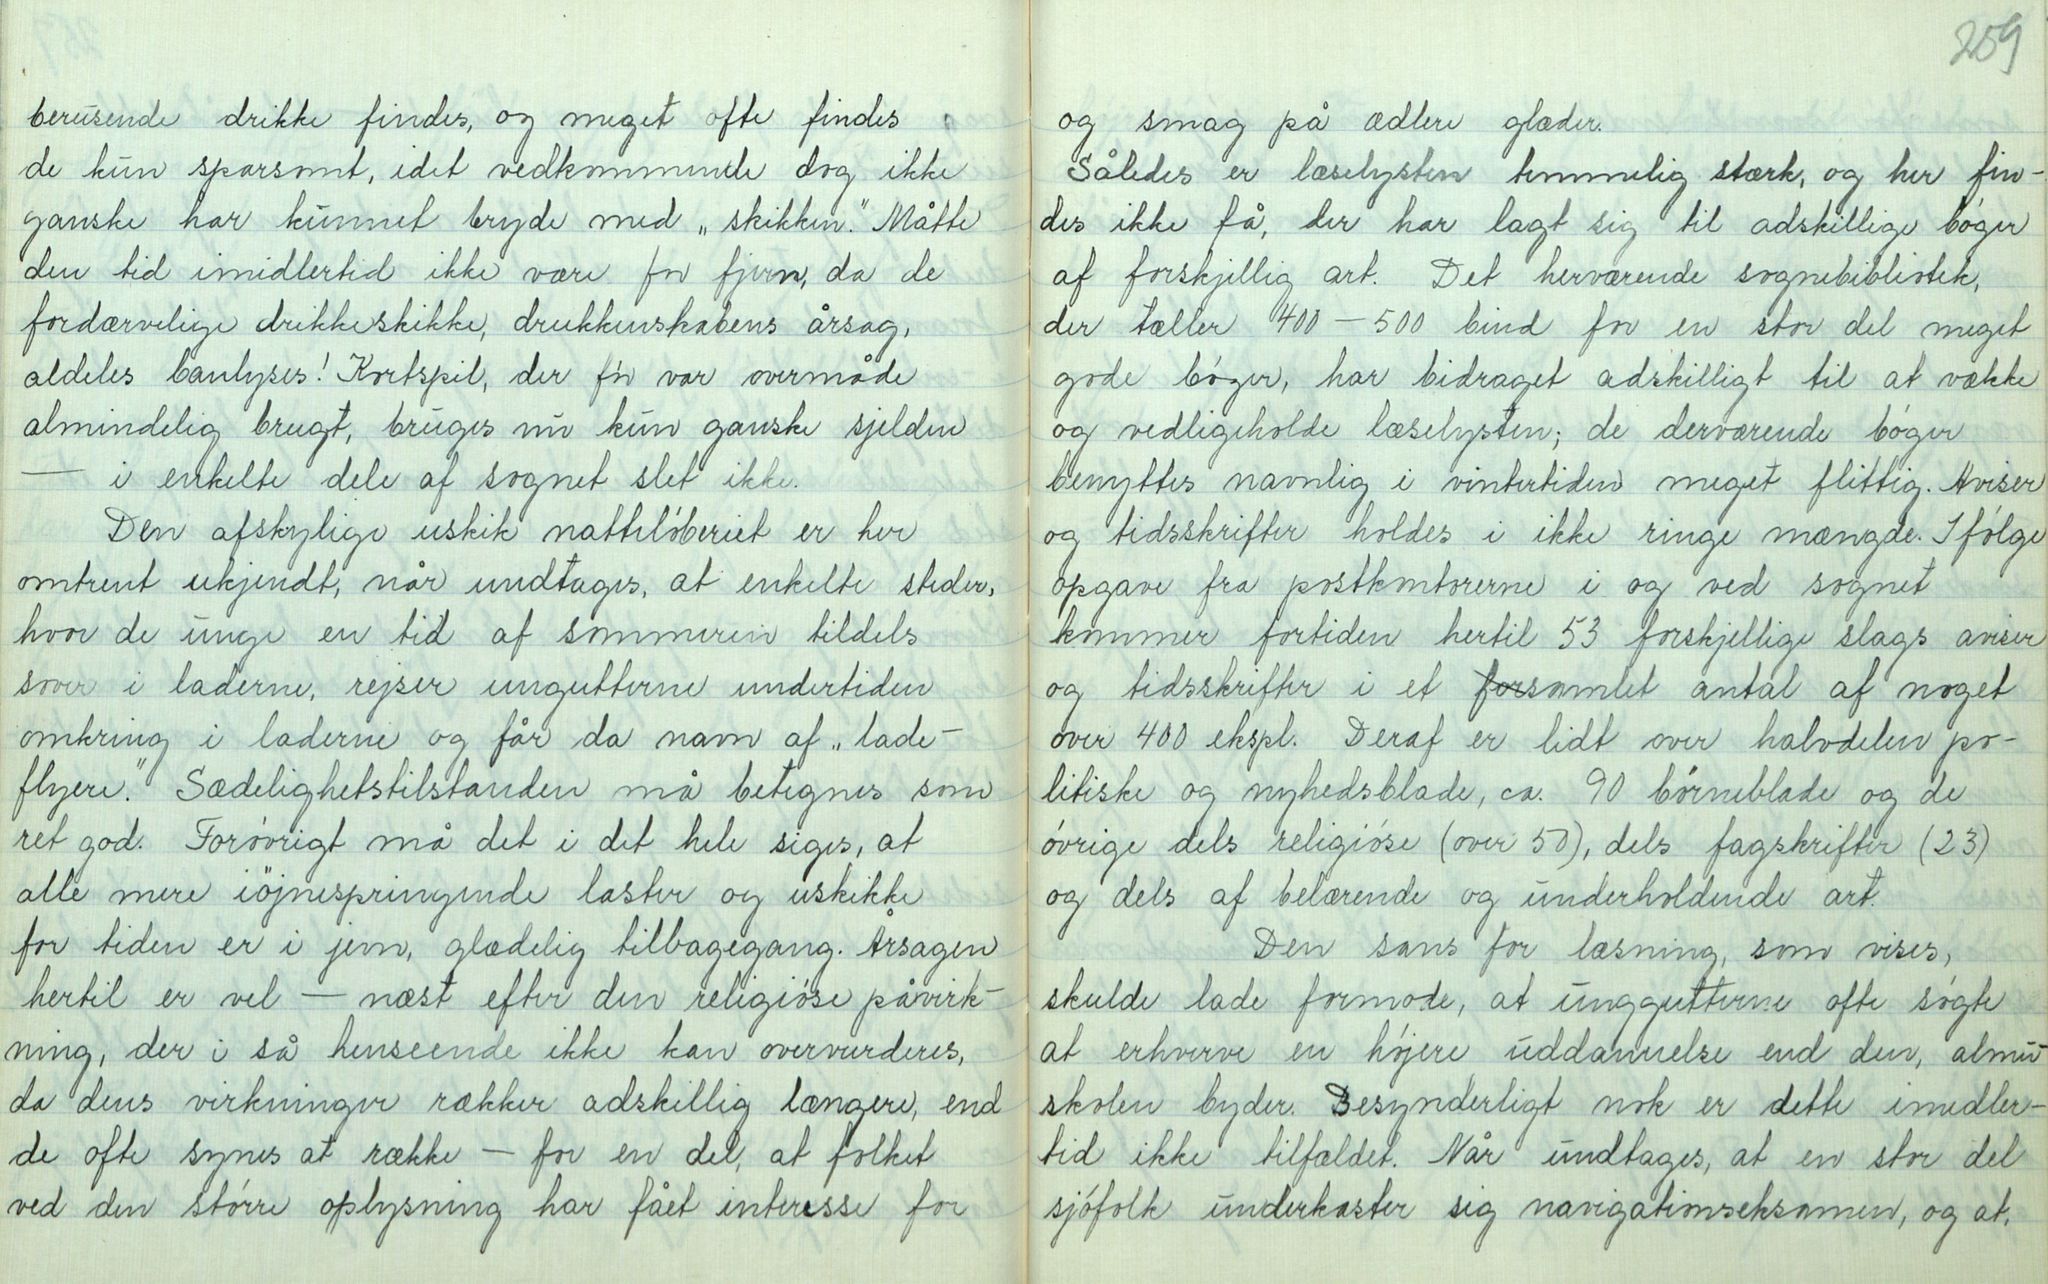 berusende drikke findes, og meget ofte findes
de kun sparsomt, idet vedkommende dog ikke
ganske har kunnet bryde med „skikken." Måtte
den tid imidlertid ikke være for fjern, da de
fordærvelige drikkeskikke, drukkenskabens årsag,
aldeles banlyses! Kortspil, der før var overmåde
almindelig brugt, bruges nu kun ganske sjelden
— i enkelte dele af sognet slet ikke.
Den afskylige uskik natteløberiet er her
omtrent ukjendt, når undtages, at enkelte steder,
hvor de unge en tid af sommeren tildels
sover i laderne, rejser ungutterne undertiden
omkring i laderne og får da navn af „lade-
flyere." Sædelighetstilstanden må betegnes som
ret god. Forøvrigt må det i det hele siges, at
alle mere iøjnespringende laster og uskikke
for tiden er i jevn, glædelig tilbagegang. Årsagen
hertil er vel — næst efter den religiøse påvirk-
ning, der i så henseende ikke kan overvurderes,
da dens virkninger rækker adskillig længere, end
de ofte synes at række — for en del, at folket
ved den større oplysning har fået interesse for
259
og smag på ædlere glæder.
Således er læselysten temmelig stærk, og her fin-
des ikke få, der har lagt sig til adskillige bøger
af forskjellig art. Det herværende sognebibliotek,
der tæller 400 — 500 bind for en stor del meget
gode bøger, har bidraget adskilligt til at vække
og vedligeholde læselysten; de derværende bøger
benyttes navnlig i vintertiden meget flittig. Aviser
og tidsskrifter holdes i ikke ringe mængde. Ifølge
opgave fra postkontorerne i og ved sognet
kommer fortiden hertil 53 forskjellige slags aviser
og tidsskrifter i et forsamlet antal af noget
over 400 ekspl. Deraf er lidt over halvdelen po-
litiske og nyhedsblade, ca. 90 børneblade og de
øvrige dels religiøse (over 50), dels fagskrifter (23)
og dels af belærende og underholdende art.
Den sans for læsning, som vises,
skulde lade formode, at unggutterne ofte søgte
at erhverve en højere uddannelse end den, almu-
skolen byder. Besynderligt nok er dette imidler-
tid ikke tilfældet. Når undtages, at en stor del
sjøfolk underkaster sig navigationseksamen, og at,